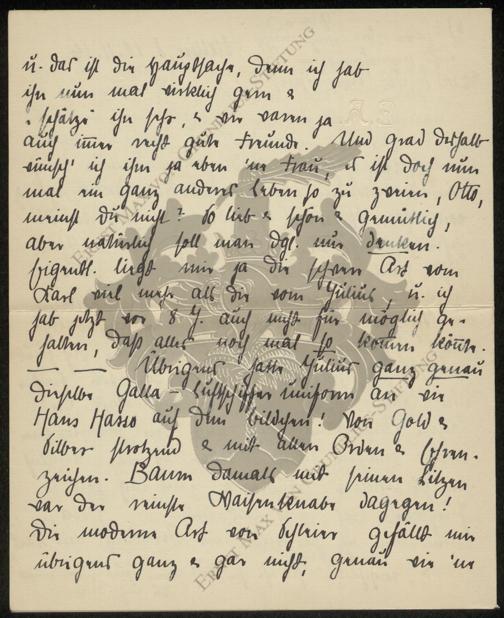 u. das ist die Hauptsache, denn ich hab
ihn nun mal wirklich gern &
schätze ihn sehr, & wir waren ja
auch immer recht gute Freunde. Und grad deshalb
wünsch' ich ihm ja eben 'ne Frau, es ist doch nun
mal ein ganz anderes Leben so zu zweien, Otto,
meinst Du nicht? So lieb & schön & gemütlich,
aber natürlich soll man dgl. nur denken.
Eigentl. liegt mir ja die schwere Art vom
Karl viel mehr als die vom Julius, u. ich
hab jetzt vor 8 J. auch nicht für möglich ge-
halten, daß alles noch mal so kommen könnte.
Übrigens hatte Julius ganz genau
dieselbe Galla-Luftschiffer uniform an wie
Hans Hasso auf dem Bildchen! Von Gold &
Silber strotzend & mit allen Orden & Ehren-
zeichen. Baum damals mit seinen Litzen
war der reinste Waisenknabe dagegen!
Die moderne Art von Schleier gefällt mir
übrigens ganz & gar nicht, genau wie 'ne
ERNST MAX VON GRUNELIUS-STIFTUNG
ERNST MAX VON GRUNELIUS-STIFTUNG